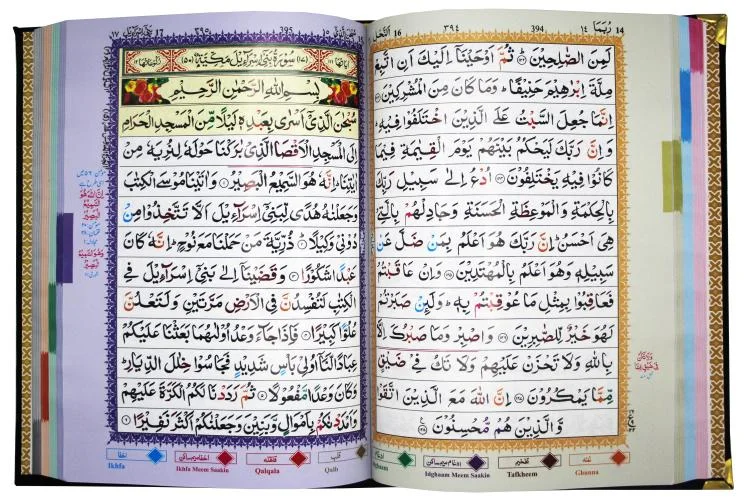 14 رُبَمَا ١٤ 394 ٣٩٤ اَلنَّحْل 16
لَمِنَ الصّٰلِحِيْنَ ﴿۱۲۲﴾ ثُمَّ اَوْحَيْنَاۤ اِلَيْكَ اَنِ اتَّبِعْ
مِلَّةَ اِبْرٰهِيْمَ حَنِيْفًا ؕ وَمَا كَانَ مِنَ الْمُشْرِكِيْنَ
اِنَّمَا جُعِلَ السَّبْتُ عَلَى الَّذِيْنَ اخْتَلَفُوْا فِيْهِ ؕ
وَاِنَّ رَبَّكَ لَيَحْكُمُ بَيْنَهُمْ يَوْمَ الْقِيٰمَةِ فِيْمَا
كَانُوْا فِيْهِ يَخْتَلِفُوْنَ ﴿۱۲۴﴾ اُدْعُ اِلٰى سَبِيْلِ رَبِّكَ
بِالْحِكْمَةِ وَالْمَوْعِظَةِ الْحَسَنَةِ وَجَادِلْهُمْ بِالَّتِيْ
هِيَ اَحْسَنُ ؕ اِنَّ رَبَّكَ هُوَ اَعْلَمُ بِمَنْ ضَلَّ عَنْ
سَبِيْلِهٖ وَهُوَ اَعْلَمُ بِالْمُهْتَدِيْنَ ﴿۱۲۵﴾ وَاِنْ عَاقَبْتُمْ
فَعَاقِبُوْا بِمِثْلِ مَا عُوْقِبْتُمْ بِهٖ ؕ وَلَئِنْ صَبَرْتُمْ
لَهُوَ خَيْرٌ لِّلصّٰبِرِيْنَ ﴿۱۲۶﴾ وَاصْبِرْ وَمَا صَبْرُكَ اِلَّا
بِاللّٰهِ وَلَا تَحْزَنْ عَلَيْهِمْ وَلَا تَكُ فِيْ ضَيْقٍ
مِّمَّا يَمْكُرُوْنَ ﴿۱۲۷﴾ اِنَّ اللّٰهَ مَعَ الَّذِيْنَ اتَّقَوْا
وَّالَّذِيْنَ هُمْ مُّحْسِنُوْنَ ﴿۱۲۸﴾
Ghunna Tafkheem Idgham Meem Saakin
395 ٣٩٥ 17 ١٧
سُوْرَةُ بَنِيْ اِسْرَآءِيْلَ مَكِّيَّةٌ
بِسْمِ اللّٰهِ الرَّحْمٰنِ الرَّحِيْمِ
سُبْحٰنَ الَّذِيْۤ اَسْرٰى بِعَبْدِهٖ لَيْلًا مِّنَ الْمَسْجِدِ الْحَرَامِ
اِلَى الْمَسْجِدِ الْاَقْصَا الَّذِيْ بٰرَكْنَا حَوْلَهٗ لِنُرِيَهٗ مِنْ
اٰيٰتِنَا ؕ اِنَّهٗ هُوَ السَّمِيْعُ الْبَصِيْرُ ﴿۱﴾ وَاٰتَيْنَا مُوْسَى الْكِتٰبَ
وَجَعَلْنٰهُ هُدًى لِّبَنِيْۤ اِسْرَآءِيْلَ اَلَّا تَتَّخِذُوْا مِنْ
دُوْنِيْ وَكِيْلًا ﴿۲﴾ ذُرِّيَّةَ مَنْ حَمَلْنَا مَعَ نُوْحٍ ؕ اِنَّهٗ كَانَ
عَبْدًا شَكُوْرًا ﴿۳﴾ وَقَضَيْنَاۤ اِلٰى بَنِيْۤ اِسْرَآءِيْلَ فِي
الْكِتٰبِ لَتُفْسِدُنَّ فِي الْاَرْضِ مَرَّتَيْنِ وَلَتَعْلُنَّ
عُلُوًّا كَبِيْرًا ﴿۴﴾ فَاِذَا جَآءَ وَعْدُ اُوْلٰىهُمَا بَعَثْنَا عَلَيْكُمْ
عِبَادًا لَّنَاۤ اُولِيْ بَاْسٍ شَدِيْدٍ فَجَاسُوْا خِلٰلَ الدِّيَارِ ؕ
وَكَانَ وَعْدًا مَّفْعُوْلًا ﴿۵﴾ ثُمَّ رَدَدْنَا لَكُمُ الْكَرَّةَ عَلَيْهِمْ
وَاَمْدَدْنٰكُمْ بِاَمْوَالٍ وَّبَنِيْنَ وَجَعَلْنٰكُمْ اَكْثَرَ نَفِيْرًا ﴿۶﴾
Qalb Qalqala Ikhfa Meem Saakin Ikhfa